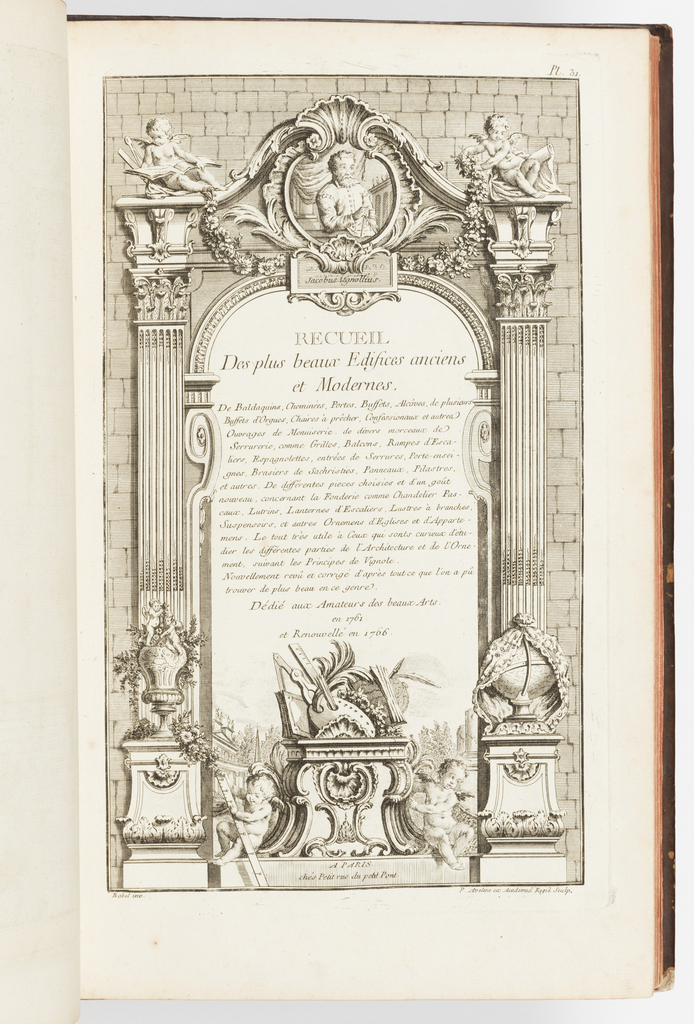 Pl. 31.
Jacobus Vignollius.
RECUEIL
Des plus beaux Edifices anciens
et Modernes.
De Baldaquins, Cheminées, Portes, Buffets, Alcôves, de plusieurs
Buffets d'Orgues, Chaires à prêcher, Confessionaux et autres
Ouvrages de Menuiserie, de divers morceaux de
Serrurerie, comme Grilles, Balcons, Rampes d'Esca-
liers, Espagnolettes, entrées de Serrures, Porte-ensei-
gnes, Brasiers de Sachristies, Panneaux, Pilastres,
et autres. De différentes pieces choisies et d'un goût
nouveau, concernant la Fonderie comme Chandelier Pas-
caux, Lutrins, Lanternes d'Escaliers, Lustres à branches,
Suspensoirs, et autres Ornemens d'Eglises et d'Apparte-
mens. Le tout très utile à Ceux qui sonts curieux d'étu-
dier les différentes parties de l'Architecture et de l'Orne-
ment, suivant les Principes de Vignole.
Nouvellement revû et corrigé d'après tout ce que l'on a pû
trouver de plus beau en ce genre.
Dédié aux Amateurs des beaux Arts.
en 1761
et Renouvellé en 1766.
A PARIS
chés Petit rue du petit Pont
Babel inv.
P. Aveline ex Academia Regia Sculp.